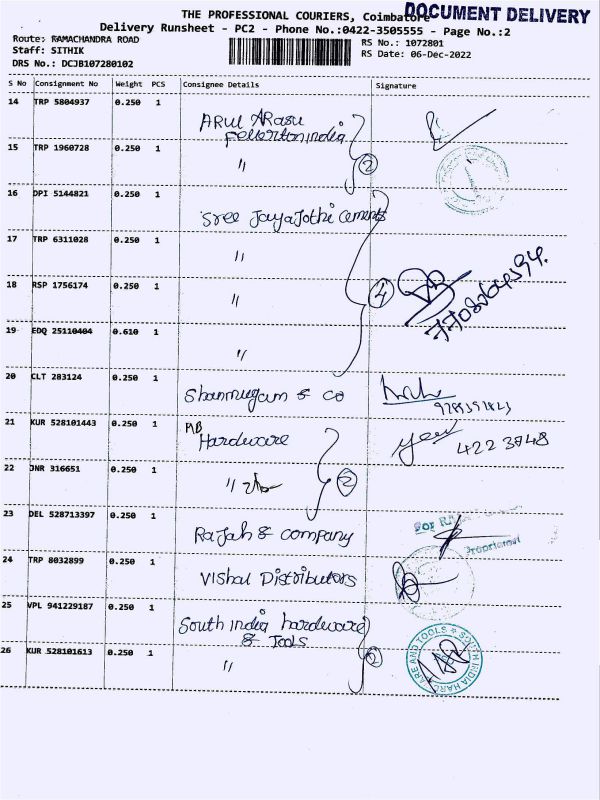 THE PROFESSIONAL COURIERS, Coimbatore
DOCUMENT DELIVERY
Delivery Runsheet - PC2 - Phone No.:0422-3505555 - Page No.:2
Route: RAMACHANDRA ROAD
RS No.: 1072801
Staff: SITHIK
RS Date: 06-Dec-2022
DRS No.: DCJB107280102
S No Consignment No Weight PCS Consignee Details Signature
14 TRP 5804937 0.250 1 ARUL ARasu
Fellerton india
15 TRP 1960728 0.250 1 " 2
16 DPI 5144821 0.250 1 Sree JayaJothi Cements
17 TRP 6311028 0.250 1 "
18 RSP 1756174 0.250 1 " 4
19 EDQ 25110404 0.610 1 "
20 CLT 283124 0.250 1 Shanmugam & co
21 KUR 528101443 0.250 1 MB Hardware 422 3748
22 JNR 316651 0.250 1 " 2
23 DEL 528713397 0.250 1 Rajah & company For
Proprietor
24 TRP 8032899 0.250 1 Vishal Distributors
25 VPL 941229187 0.250 1 South india hardware
& Tools
26 KUR 528101613 0.250 1 " 2 SOUTH INDIA HARDWARE AND TOOLS